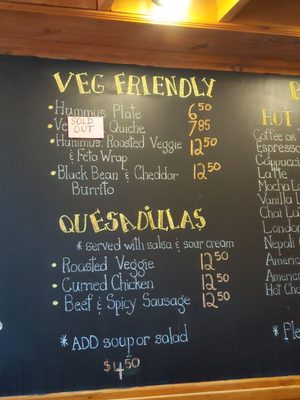 VEG FRIENDLY
Hummus Plate 6.50
SOLD OUT
Quiche 7.85
Hummus, Roasted Veggie 12.50
& Feta Wrap
Black Bean & Cheddar 12.50
Burrito
QUESADILLAS
* served with salsa & sour cream
Roasted Veggie 12.50
Curried Chicken 12.50
Beef & Spicy Sausage 12.50
* ADD soup or salad
$4.50
HOT
Coffee
Espresso
Cappucci
Latte
Mocha La
Vanilla L
Chai Lat
London
Nepali
America
Americ
Hot Cho